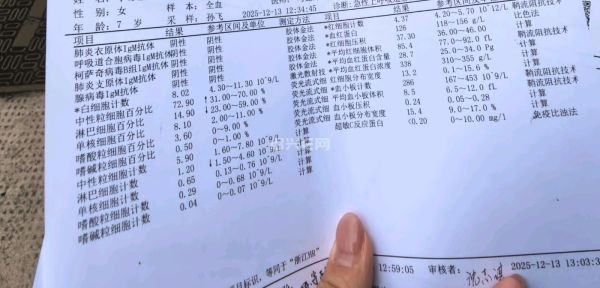 性别：女 样本：全血
年龄：7 岁 采样：孙飞 2025-12-13 12:34:45 诊断：急性上呼吸
项目 结果 参考区间及单位 测定方法 项目 结果 参考区间及单位
肺炎衣原体IgM抗体 阴性 阴性 胶体金法 *红细胞计数 4.37 4.20~5.70 10^12/L 鞘流阻抗技术
呼吸道合胞病毒IgM抗体 阴性 阴性 胶体金法 *血红蛋白 126 118~156 g/L 比色法
柯萨奇病毒B组IgM抗体 阴性 阴性 胶体金法 *红细胞压积 37.30 36.00~46.00 计算
肺炎支原体IgM抗体 阴性 阴性 胶体金法 *平均红细胞体积 85.4 77.0~92.0 fL 鞘流阻抗技术
腺病毒IgM抗体 阴性 阴性 胶体金法 *平均红细胞血红蛋白含量 28.7 25.0~34.0 Pg 计算
*白细胞计数 8.02 4.30~11.30 10^9/L 激光散射技 *平均红细胞血红蛋白浓度 338 310~355 g/L 计算
中性粒细胞百分比 72.90 ↑31.00~70.00 % 荧光流式细 红细胞分布宽度 13.2 0.1~15.0 % 计算
淋巴细胞百分比 14.90 ↓23.00~59.00 % 荧光流式细 *血小板计数 286 167~453 10^9/L 鞘流阻抗技术
单核细胞百分比 8.10 2.00~11.00 % 荧光流式细 平均血小板体积 8.5 6.5~12.0 fL 计算
嗜酸粒细胞百分比 3.60 0~9.00 % 荧光流式细 血小板压积 0.24 0.05~0.28 计算
嗜碱粒细胞百分比 0.50 0~1.00 % 荧光流式细 血小板分布宽度 15.4 9.0~17.0 % 计算
中性粒细胞计数 5.90 1.60~7.80 10^9/L 计算 超敏C反应蛋白 <0.20 0~10.00 mg/l 免疫比浊法
淋巴细胞计数 1.20 ↓1.50~4.60 10^9/L 计算
单核细胞计数 0.65 0.13~0.76 10^9/L 计算
嗜酸粒细胞计数 0.29 0~0.68 10^9/L 计算
嗜碱粒细胞计数 0.04 0~0.07 10^9/L 计算
目标识，等同于“浙江HR”
12:59:05 审核者： 2025-12-13 13:03:3